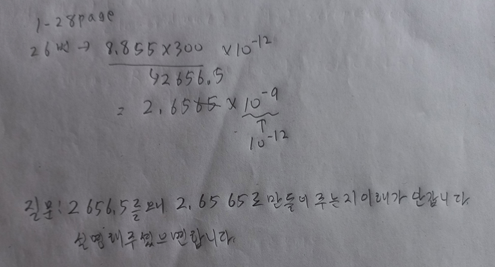 1-28page
26번 → 8.855×300 ×10⁻¹²
↳2656.5
= 2.6565 × 10⁻⁹
↑
10⁻¹²
질문: 2656.5를 왜 2.6565로 만들어 주는지 이해가 안갑니다
설명해주셨으면합니다